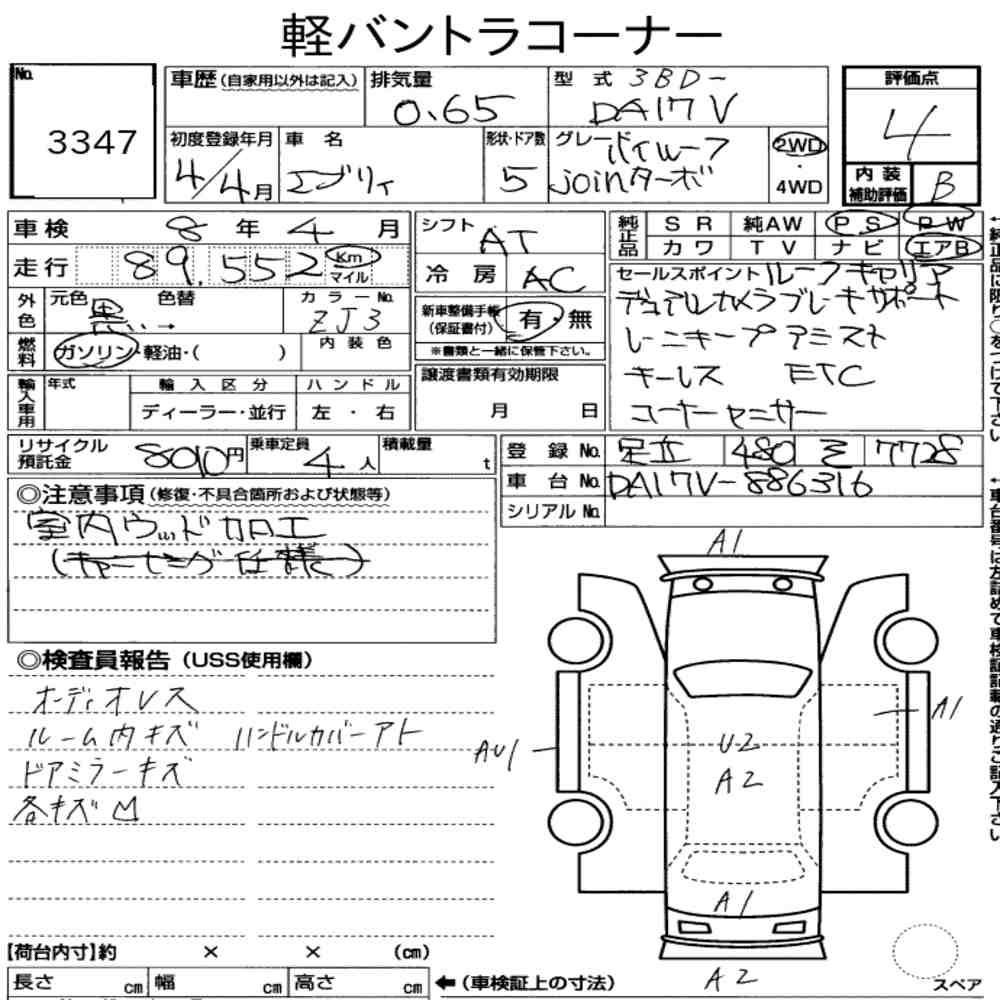 軽バントラコーナー
No. 3347
車歴 (自家用以外は記入)
排気量 0.65
型式 3BD-
DA17V
評価点 4
初度登録年月 4/4月
車名 エブリィ
形状・ドア数 5
グレード ハイルーフ
joinターボ
2WD・4WD
内装補助評価 B
車検 8年 4月
シフト AT
純正品 SR 純AW P.S P.W
カワ TV ナビ エアB
走行 89,552 Km マイル
冷房 AC
セールスポイント ルーフキャリア
デュアルカメラブレーキサポート
レーンキープアシスト
キーレス ETC
コーナーセンサー
外色 元色 黒 → 色替
カラーNo. ZJ3
内装色
新車整備手帳 (保証書付) 有・無
※書類と一緒に保管下さい。
燃料 ガソリン・軽油・( )
譲渡書類有効期限
月 日
輸入車用 年式 輸入区分 ハンドル
ディーラー・並行 左・右
リサイクル預託金 8010円
乗車定員 4人
積載量 t
登録No. 足立 480 そ 7728
車台No. DA17V-886316
シリアルNo.
◎注意事項 (修復・不具合箇所および状態等)
室内ウッド加工
(キャンピング仕様)
◎検査員報告 (USS使用欄)
オーディオレス
ルーム内キズ ハンドルカバーアト
ドアミラーキズ
各キズ凹
A1
AU1
A1
U2
A2
A1
A2
【荷台内寸】約 × × (cm)
長さ cm 幅 cm 高さ cm
←(車検証上の寸法)
スペア
←純正品に限り○をつけて下さい
←車台番号は左詰めで車検証記載の通りご記入下さい